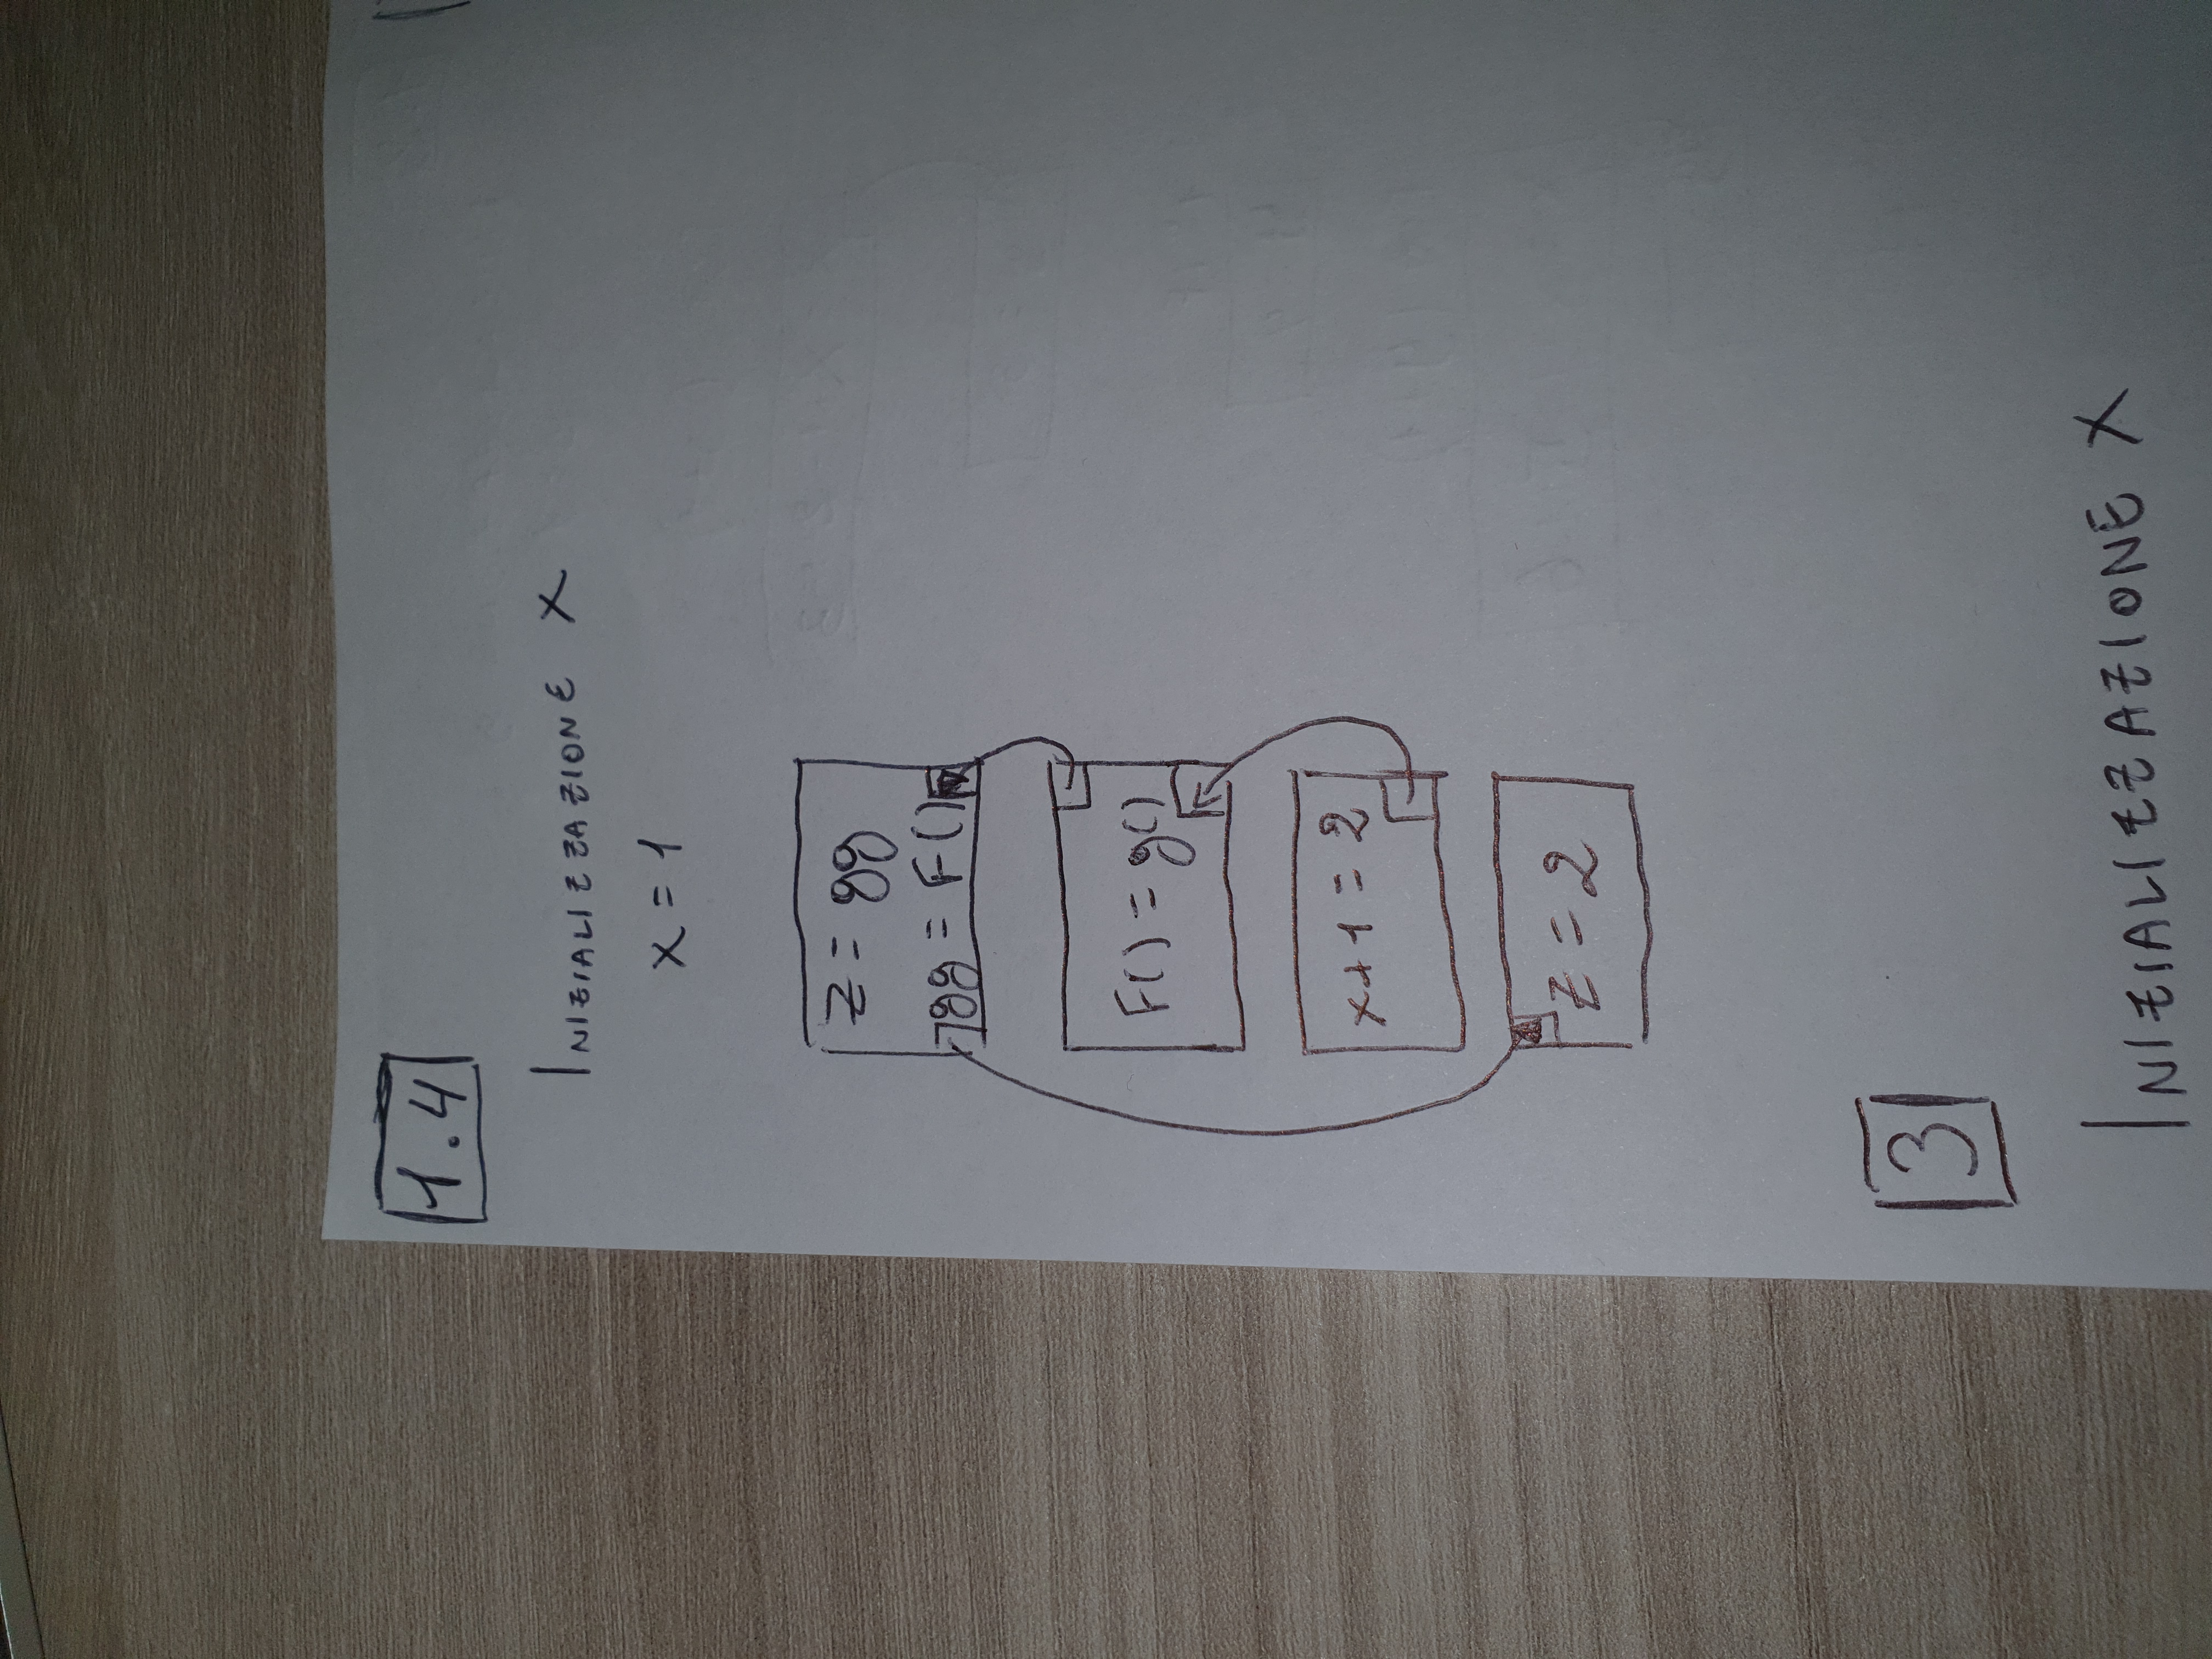 1.4
INIZIALIZZAZIONE X
x = 1
z = gg
gg = F()
F() = g()
x+1 = 2
z = 2
3
INIZIALIZZAZIONE X